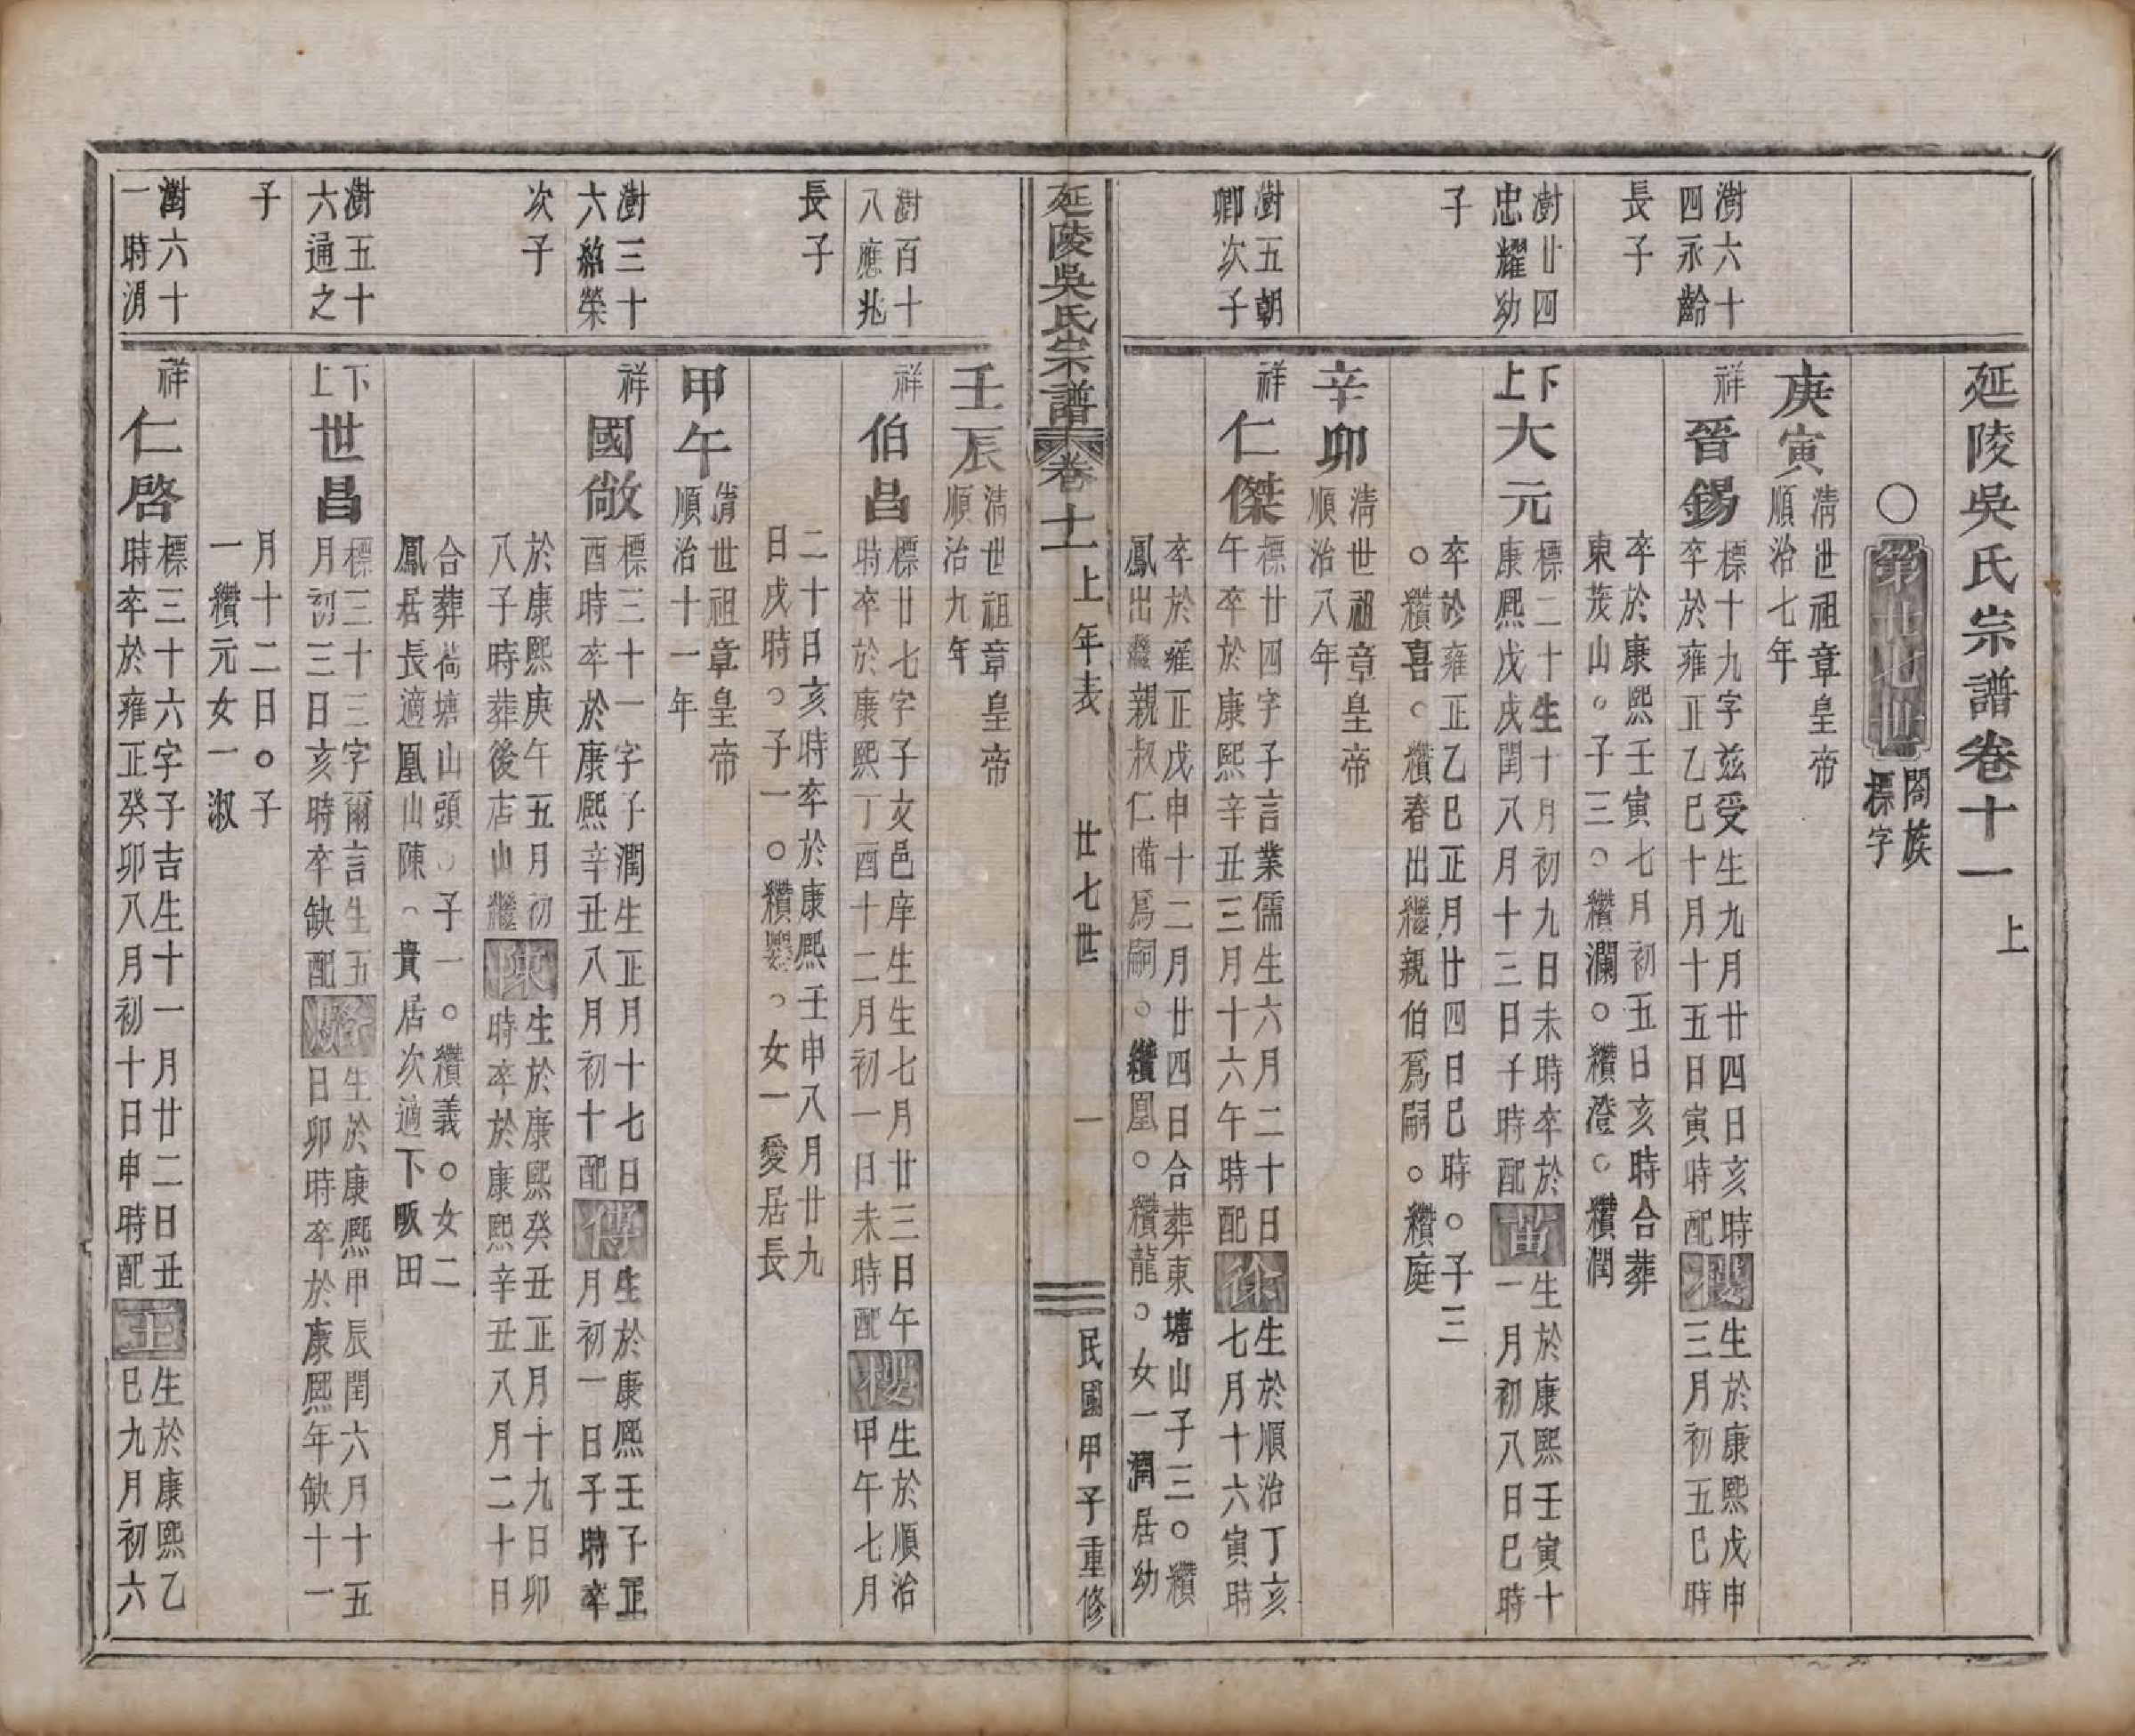 延陵吳氏宗譜卷十一上
〇第廿七世 閤族標字
庚寅 清世祖章皇帝順治七年
澍六十四永齡長子
祥 晉錫 標十九字茲受生九月廿四日亥時卒於雍正乙巳十月十五日寅時配 櫻 生於康熙戊申三月初五巳時
卒於康熙壬寅七月初五日亥時合葬東茂山。子三〇纘瀾〇纘澄〇纘潤
澍廿四忠耀幼子
下上 大元 標二十生十月初九日未時卒於康熙戊戌閏八月十三日子時配 苗 生於康熙壬寅十一月初八日巳時
卒於雍正乙巳正月廿四日巳時〇子三〇纘喜〇纘春出繼親伯爲嗣〇纘庭
辛卯 清世祖章皇帝順治八年
澍五朝卿次子
祥 仁傑 標廿四字子言業儒生六月二十日午卒於康熙辛丑三月十六午時配 徐 生於順治丁亥七月十六寅時
卒於雍正戊申十二月廿四日合葬東塘山子三〇纘鳳出繼親叔仁備爲嗣〇纘凰〇纘龍〇女一潤居幼
延陵吳氏宗譜 卷十一上年表 廿七世 一 民國甲子重修
壬辰 清世祖章皇帝順治九年
澍百十八應兆長子
祥 伯昌 標廿七字子文邑庠生生七月廿三日午時卒於康熙丁酉十二月初一日未時配 櫻 生於順治甲午七月
二十日亥時卒於康熙壬申八月廿九日戌時〇子一〇纘嬰〇女一愛居長
甲午 清世祖章皇帝順治十一年
澍三十六紹榮次子
祥 國敞 標三十一字子潤生正月十七日酉時卒於康熙辛丑八月初十配 傅 生於康熙壬子正月初一日子時卒
於康熙庚午五月初八子時葬後店山繼 陳 生於康熙癸丑正月十九日卯時卒於康熙辛丑八月二十日
合葬荷塘山頭〇子一〇纘義〇女二鳳居長適凰山陳〇貴居次適下畈田
澍五十六通之子
下上 世昌 標三十三字爾言生五月初三日亥時卒缺配 生於康熙甲辰閏六月十五日卯時卒於康熙年缺十一
月十二日〇子一纘元女一淑
澍六十一時淯
祥 仁啓 標三十六字子吉生十一月廿二日丑時卒於雍正癸卯八月初十日申時配 王 生於康熙乙巳九月初六